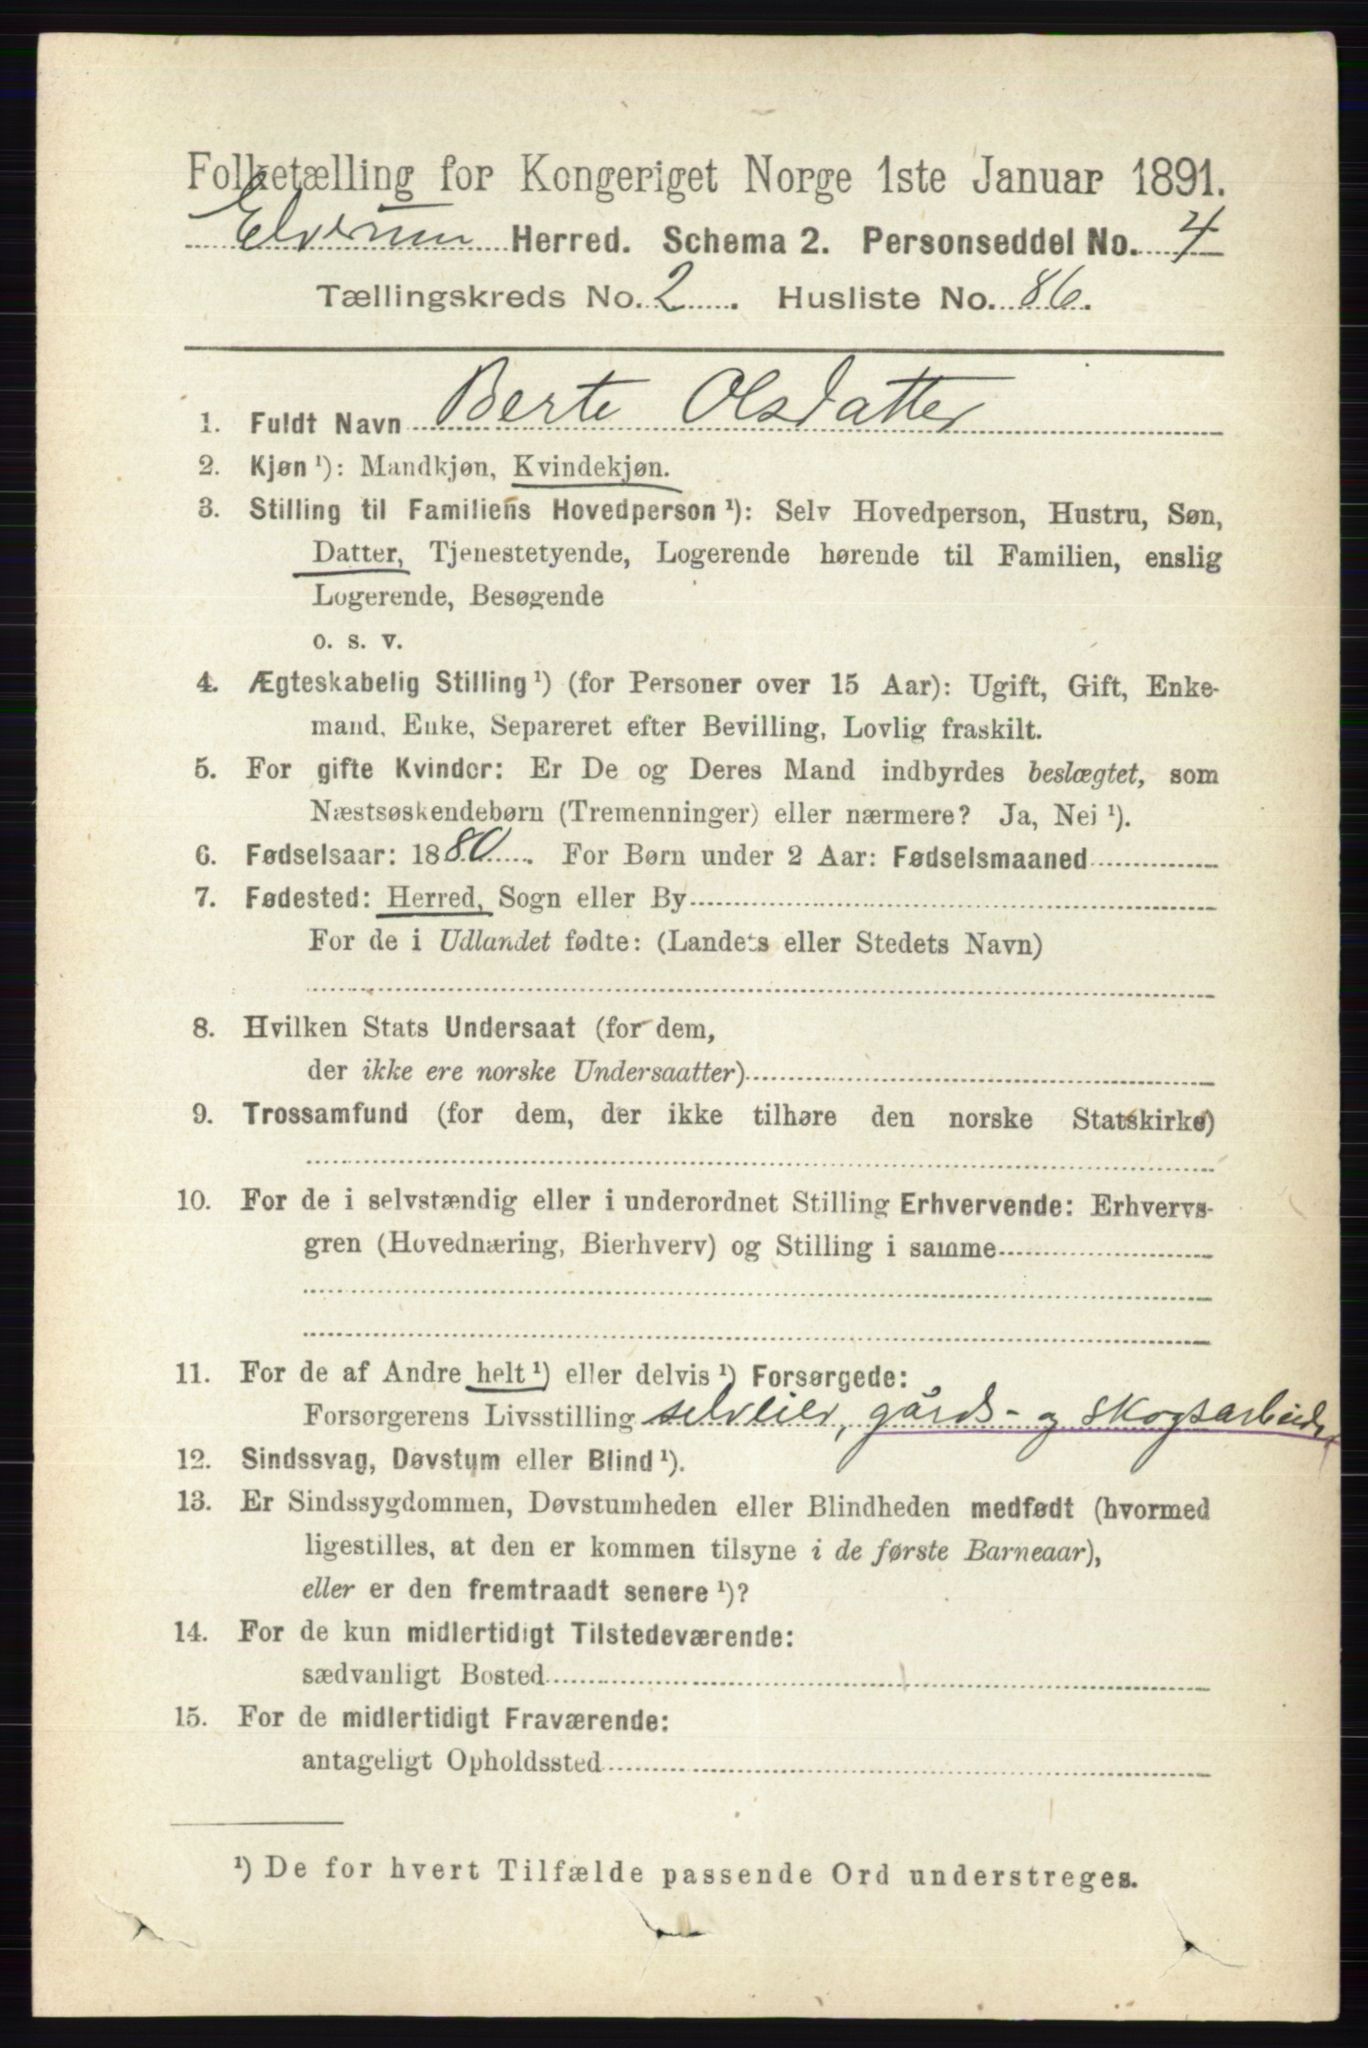 Folketælling for Kongeriget Norge 1ste Januar 1891.
Elverum Herred. Schema 2. Personseddel No. 4
Tællingskreds No. 2. Husliste No. 86.
1. Fuldt Navn Berte Olsdatter
2. Kjøn ¹): Mandkjøn, Kvindekjøn.
3. Stilling til Familiens Hovedperson ¹): Selv Hovedperson, Hustru, Søn,
Datter, Tjenestetyende, Logerende hørende til Familien, enslig
Logerende, Besøgende
o. s. v.
4. Ægteskabelig Stilling ¹) (for Personer over 15 Aar): Ugift, Gift, Enke-
mand, Enke, Separeret efter Bevilling, Lovlig fraskilt.
5. For gifte Kvinder: Er De og Deres Mand indbyrdes beslægtet, som
Næstsøskendebørn (Tremenninger) eller nærmere? Ja, Nei ¹).
6. Fødselsaar: 1880. For Børn under 2 Aar: Fødselsmaaned
7. Fødested: Herred, Sogn eller By
For de i Udlandet fødte: (Landets eller Stedets Navn)
8. Hvilken Stats Undersaat (for dem,
der ikke ere norske Undersaatter)
9. Trossamfund (for dem, der ikke tilhøre den norske Statskirke)
10. For de i selvstændig eller i underordnet Stilling Erhvervende: Erhvervs-
gren (Hovednæring, Bierhverv) og Stilling i samme
11. For de af Andre helt ¹) eller delvis ¹) Forsørgede:
Forsørgerens Livsstilling selveier, gårds- og skogsarbeider
12. Sindssvag, Døvstum eller Blind ¹).
13. Er Sindssygdommen, Døvstumheden eller Blindheden medfødt (hvormed
ligestilles, at den er kommen tilsyne i de første Barneaar),
eller er den fremtraadt senere ¹)?
14. For de kun midlertidigt Tilstedeværende:
sædvanligt Bosted
15. For de midlertidigt Fraværende:
antageligt Opholdssted
¹) De for hvert Tilfælde passende Ord understreges.